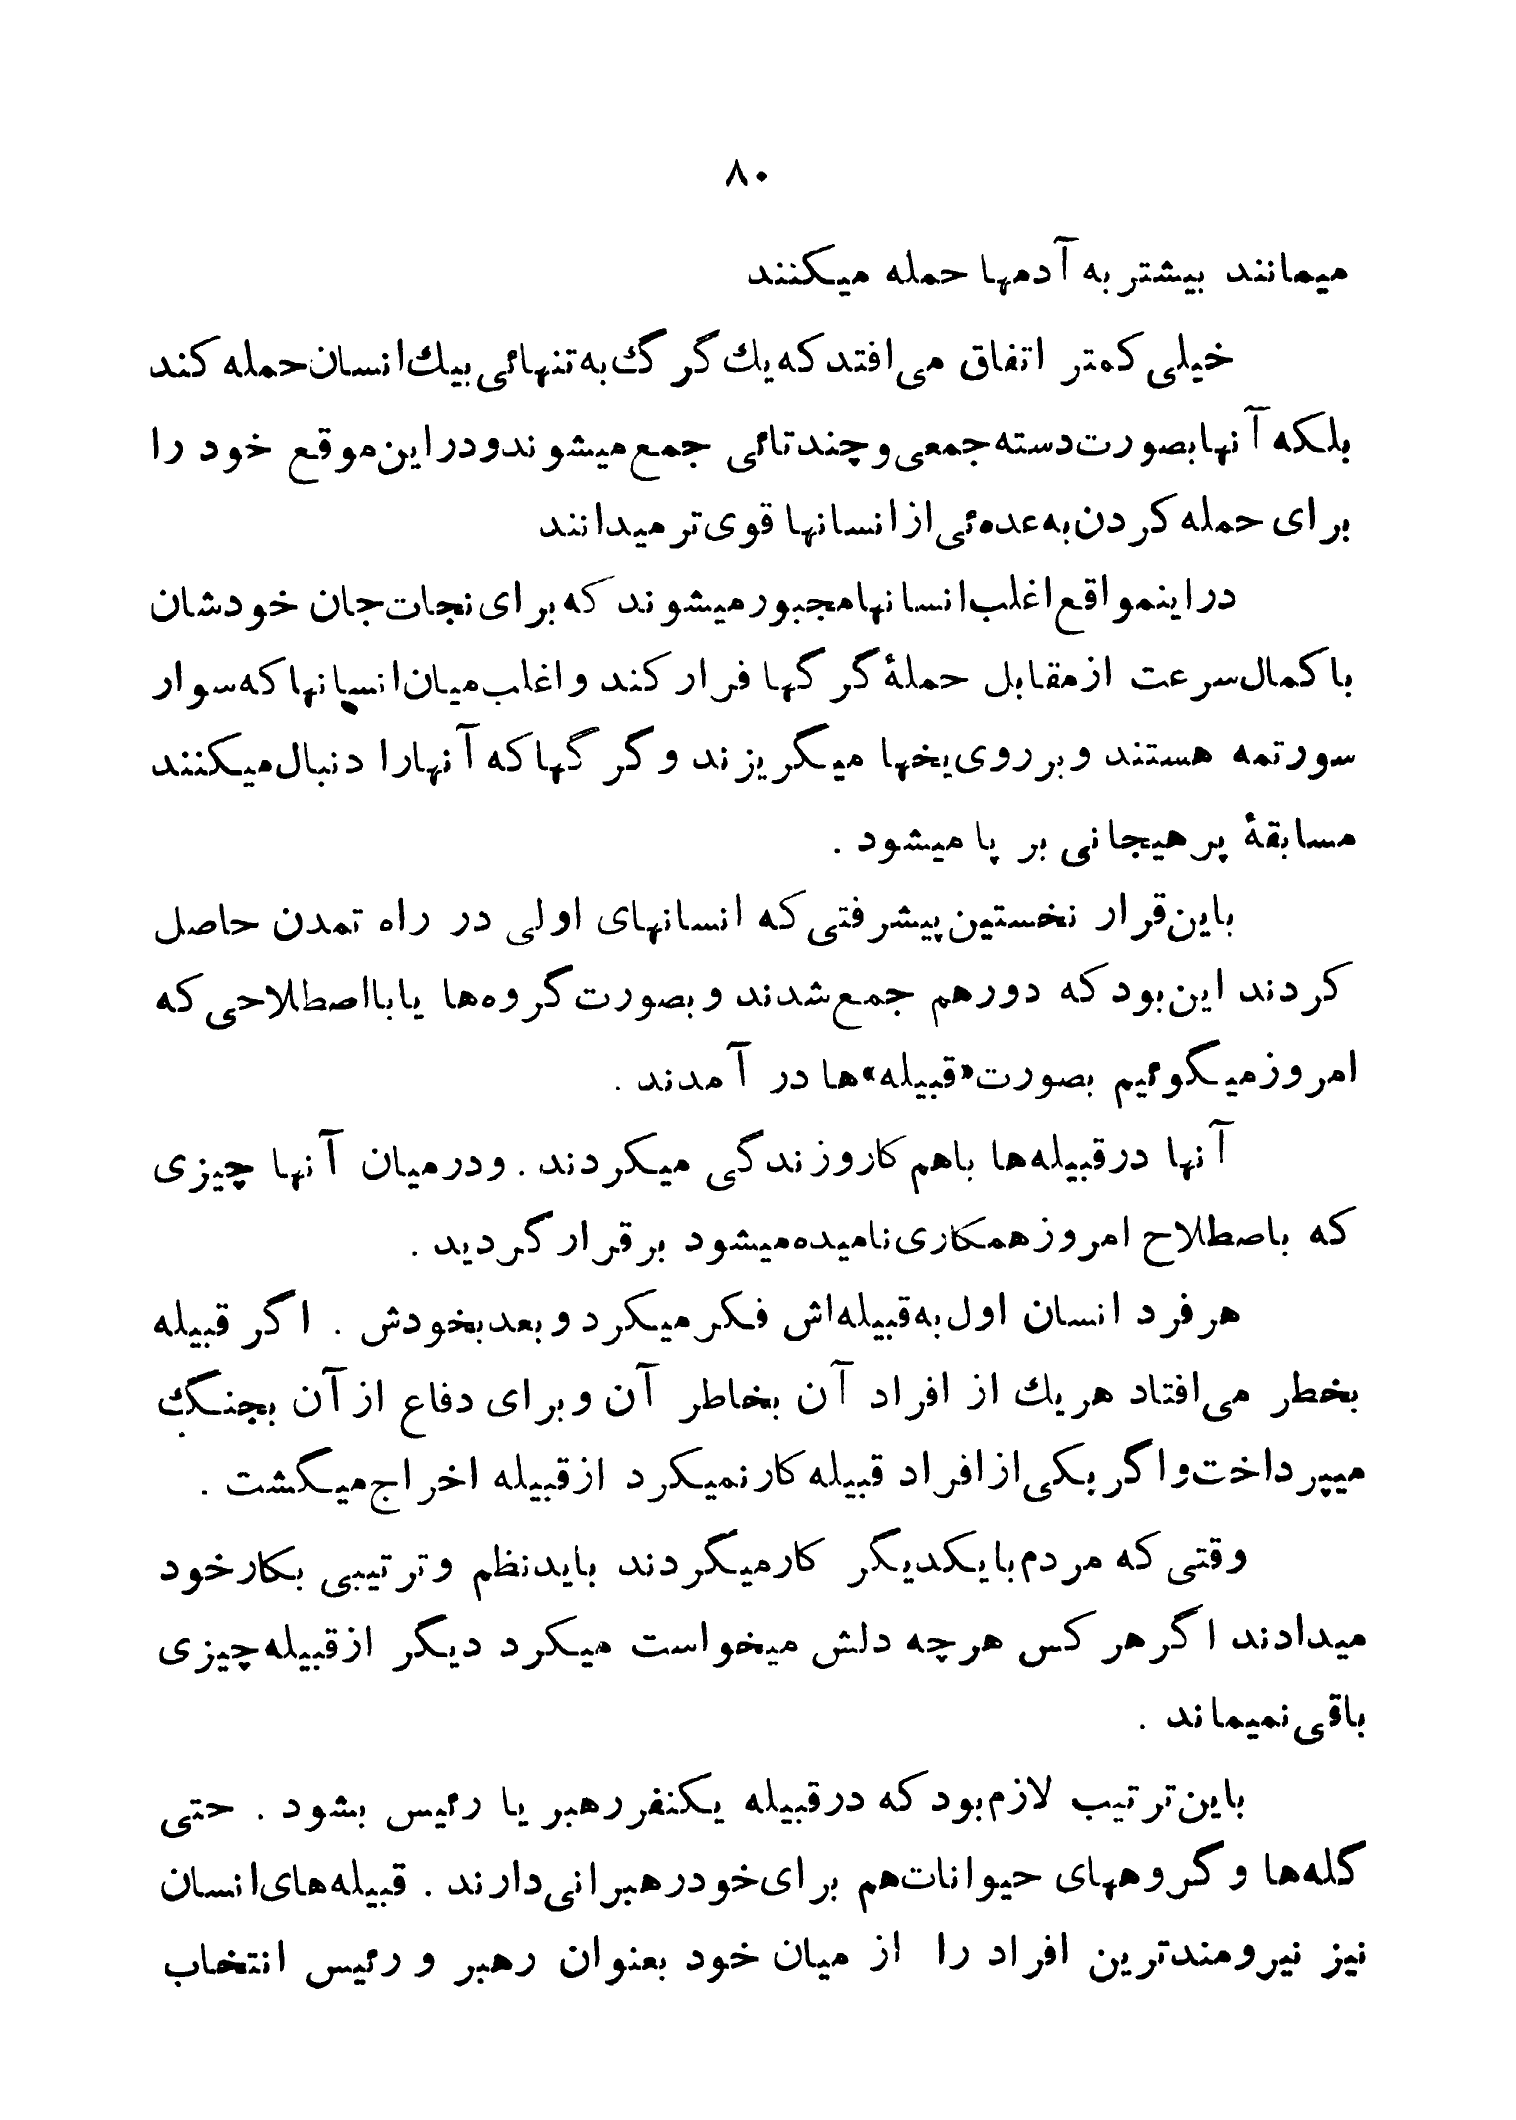 ۸۰
میمانند بیشتر به آدمها حمله میکنند
خیلی کمتر اتفاق می‌افتد که یك گرگ به تنهائی بیك انسان حمله کند
بلکه آنها بصورت دسته جمعی و چند تائی جمع میشوند و در این موقع خود را
برای حمله کردن به عده‌ئی از انسانها قوی‌تر میدانند
در اینمواقع اغلب انسانها مجبور میشوند که برای نجات جان خودشان
با کمال سرعت از مقابل حملهٔ گرگها فرار کند و اغلب میان انسانها که سوار
سورتمه هستند و بر روی یخها میگریزند و گرگها که آنها را دنبال میکنند
مسابقهٔ پر هیجانی بر پا میشود .
باین قرار نخستین پیشرفتی که انسانهای اولی در راه تمدن حاصل
کردند این بود که دور هم جمع شدند و بصورت گروه‌ها یا با اصطلاحی که
امروز میگوئیم بصورت «قبیله» ها در آمدند .
آنها در قبیله‌ها باهم کار و زندگی میکردند . و در میان آنها چیزی
که باصطلاح امروز همکاری نامیده میشود برقرار گردید .
هر فرد انسان اول به قبیله‌اش فکر میکرد و بعد بخودش . اگر قبیله
بخطر می‌افتاد هر یك از افراد آن بخاطر آن و برای دفاع از آن بجنگ
میپرداخت و اگر یکی از افراد قبیله کار نمیکرد از قبیله اخراج میگشت .
وقتی که مردم با یکدیگر کار میگردند باید نظم و ترتیبی بکار خود
میدادند اگر هر کس هر چه دلش میخواست میکرد دیگر از قبیله چیزی
باقی نمیماند .
باین ترتیب لازم بود که در قبیله یکنفر رهبر یا رئیس بشود . حتی
گله‌ها و گروههای حیوانات هم برای خود رهبرانی دارند . قبیله‌های انسان
نیز نیرومندترین افراد را از میان خود بعنوان رهبر و رئیس انتخاب